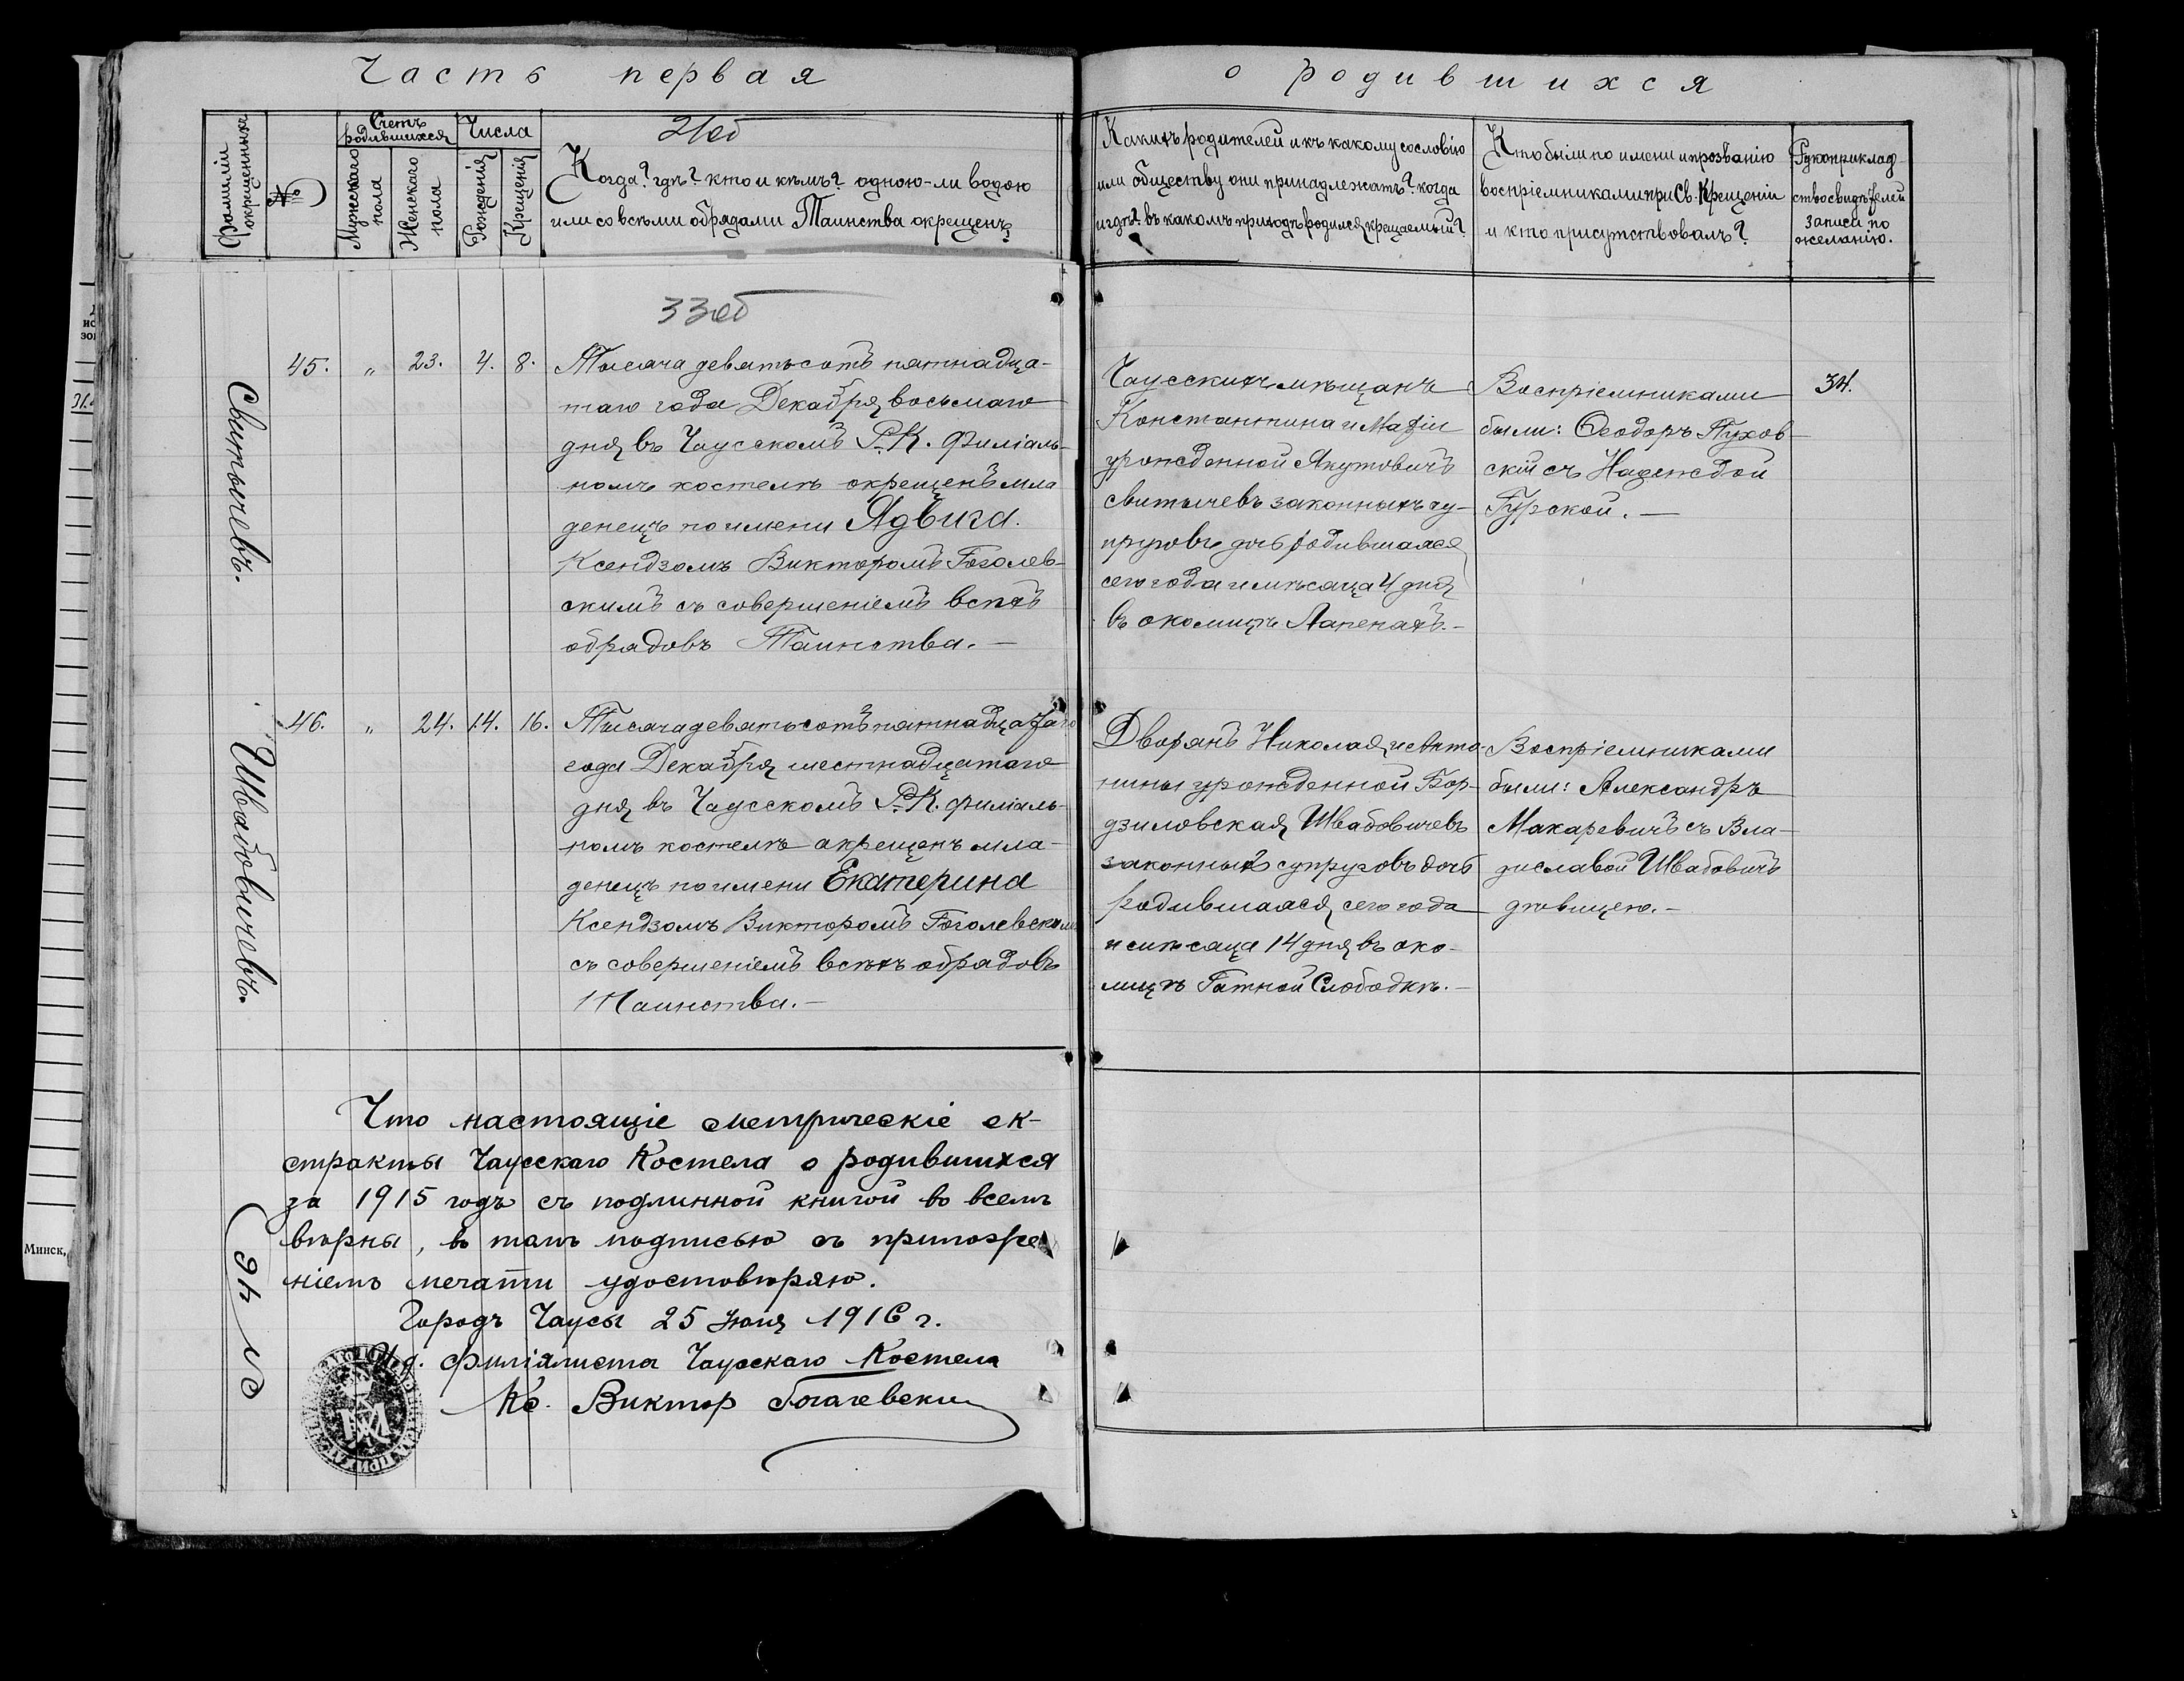 Часть первая
о родившихся
Фамиліи окрещенныхъ
№
Счетъ родившихся
Мужскаго пола
Женскаго пола
Числа
Рожденія
Крещенія
21об
Когда? гдѣ? кто и кѣмъ? одною-ли водою
или со всѣми обрядами Таинства окрещенъ?
Какихъ родителей и къ какому сословію
или обществу они принадлежатъ? когда
и гдѣ? въ какомъ приходѣ родился крещаемый?
Кто были по имени и прозванію
воспріемниками при Св. Крещеніи
и кто присутствовалъ?
Рукоприклад-
ство свидѣтелей
записи по
желанію.
33об
Свитычевъ.
45. " 23. 4. 8.
Тысяча девятьсотъ пятнадца-
таго года Декабря восьмаго
дня въ Чаусскомъ Р.К. филіаль-
номъ костелѣ окрещенъ мла
денецъ по имени Ядвига.
Ксендзомъ Викторомъ Гоголев-
скимъ съ совершеніемъ всѣхъ
обрядовъ Таинства.—
Чаусскихъ мѣщанъ
Константина и Маріи
урожденной Якутовичъ
Свитычевъ законныхъ су-
пруговъ дочь родившаяся
сего года и мѣсяца 4 дня
въ околицѣ Лапенахъ.—
Воспріемниками
были: Ѳеодоръ Пухов-
скій съ Надеждой
Гурской.—
34.
Швабовичевъ.
46. " 24. 14. 16.
Тысяча девятьсотъ пятнадцатаго
года Декабря шестнадцатаго
дня въ Чаусскомъ Р.К. филіаль-
номъ костелѣ окрещенъ мла-
денецъ по имени Екатерина
Ксендзомъ Викторомъ Гоголевскимъ
съ совершеніемъ всѣхъ обрядовъ
Таинства.—
Дворянъ Николая и Анто-
нины урожденной Бор-
дзиловская Швабовичевъ
законныхъ супруговъ дочь
родившаяся сего года
и мѣсяца 14 дня въ око-
лицѣ Гатной Слободкѣ.—
Воспріемниками
были: Александръ
Макаревичъ съ Вла-
диславой Швабовичъ
дѣвицею.—
Что настоящіе метрическіе ек-
стракты Чаусскаго Костела о родившихся
за 1915 годъ съ подлинной книгой во всемъ
вѣрны, въ томъ подписью съ приложе
ніемъ печати удостовѣряю.
Городъ Чаусы 25 1916 г.
И.д. филіялиста Чаусскаго Костела
Кс. Виктор
№ 46
Минск,